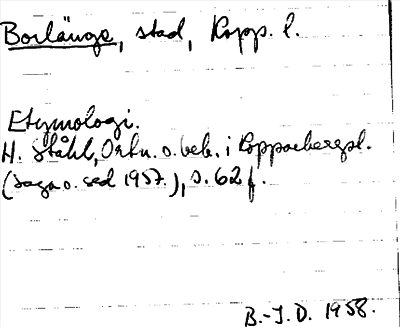 Borlänge, stad, Kopp. l.
Etymologi.
H. Ståhl, Ortn. o. beb. i Kopparbergsl.
(Saga o. sed 1957.), s. 62 f.
B.-I.D. 1958.